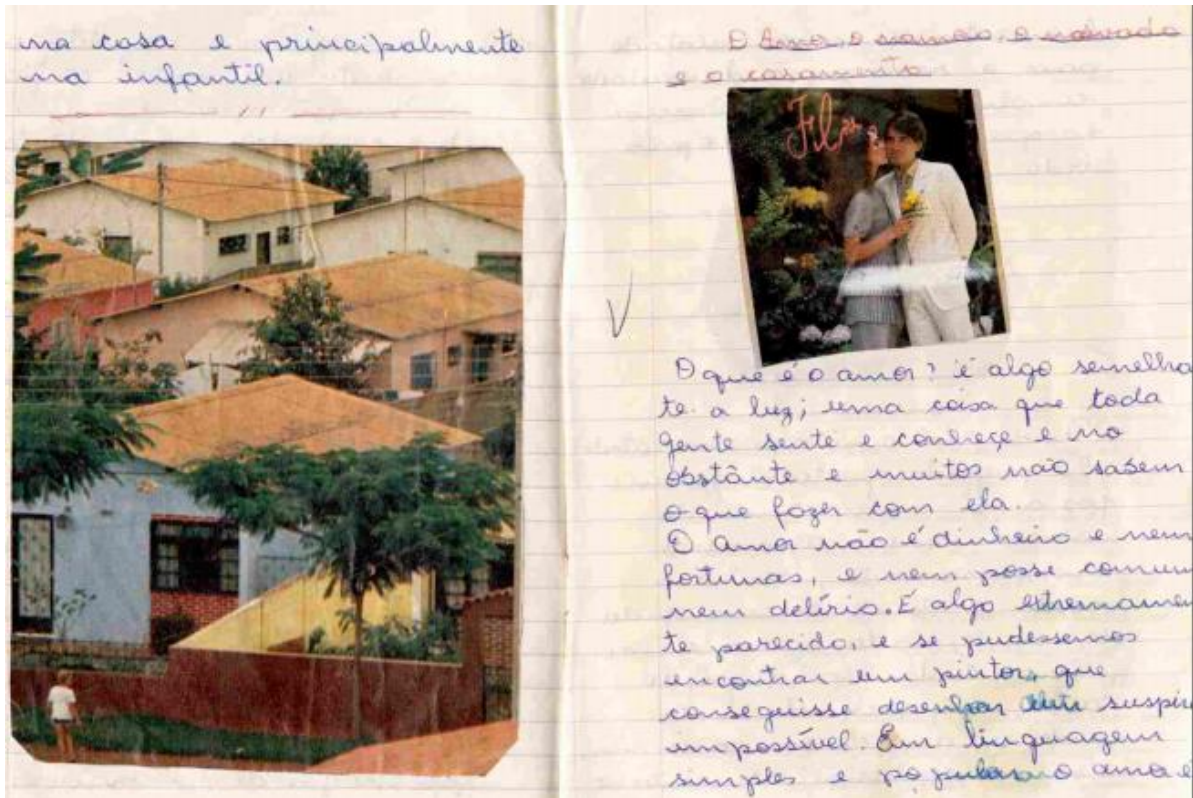 na casa e principalmente
na infantil.
O Amor, o namoro, o noivado
e o casamento
O que é o amor? é algo semelha
te a luz; uma coisa que toda
gente sente e conheçe e no
obstânte e muitos não sabem
o que fazer com ela.
O amor não é dinheiro e nem
fortunas, e nem posse comum
nem delírio. É algo estremamen
te parecido, e se pudessemos
encontrar um pintor, que
conseguisse desenhar suspir
impossível. Em linguagem
simples e popular o amor é